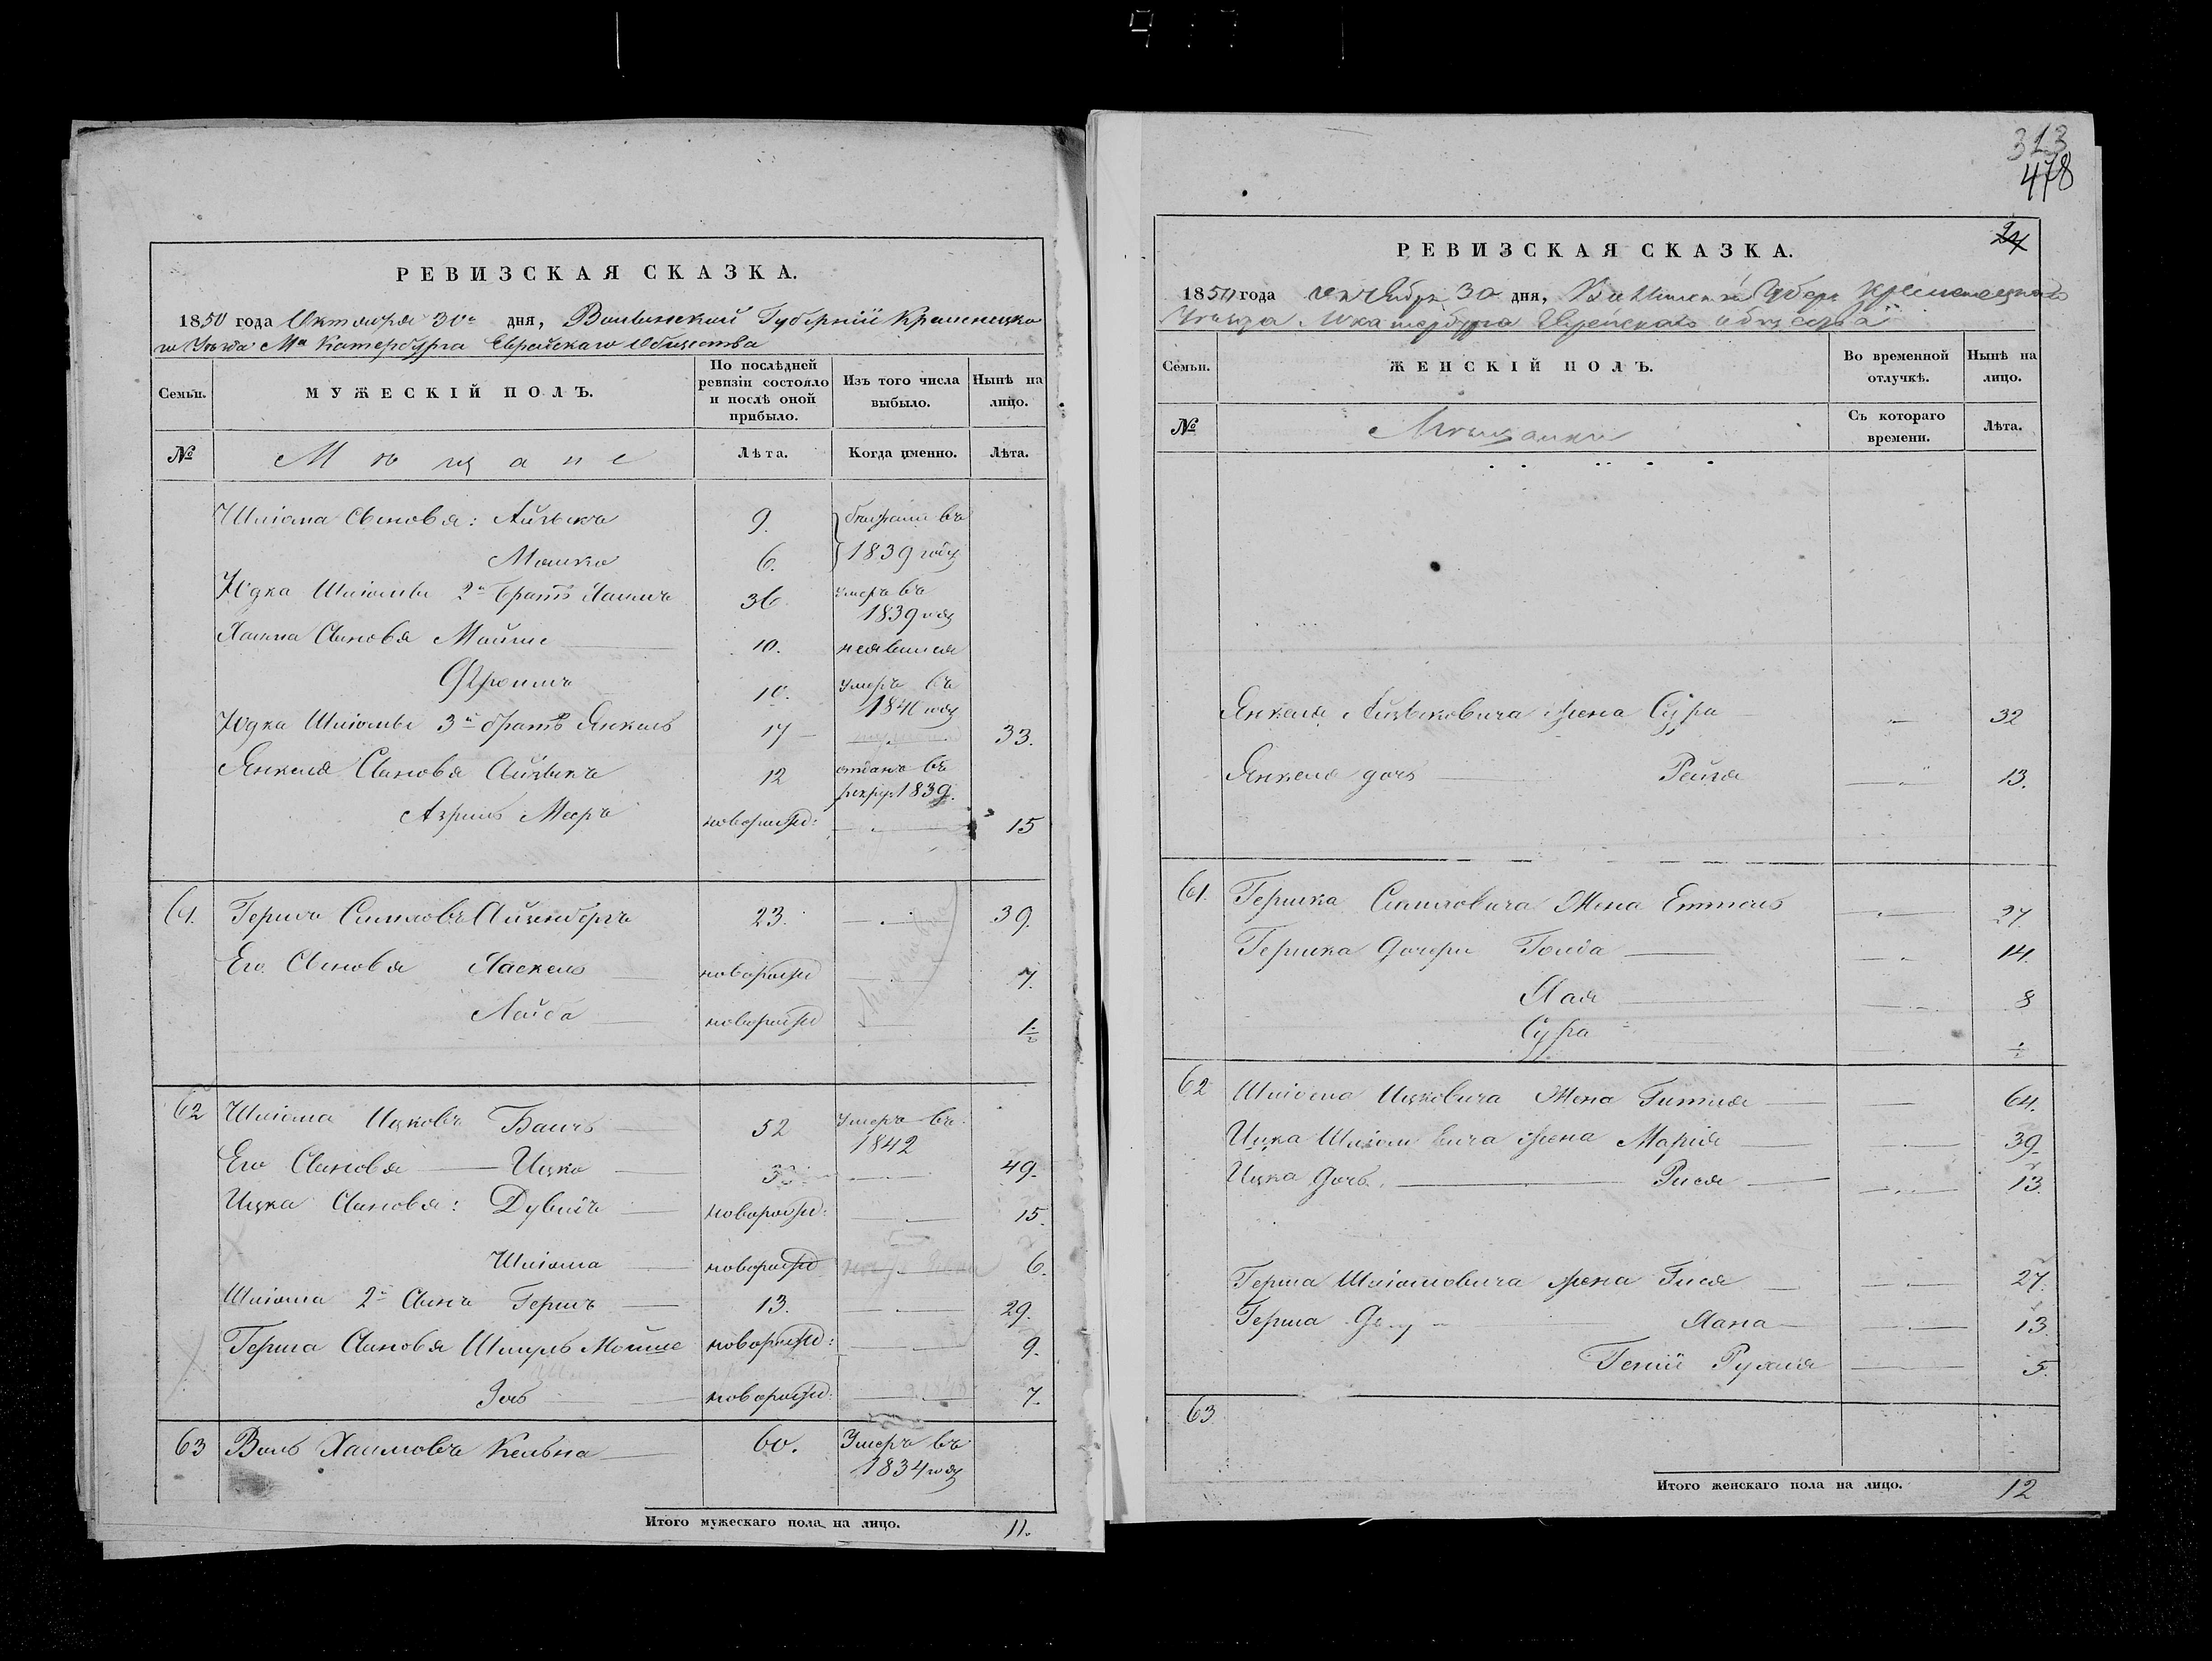 РЕВИЗСКАЯ СКАЗКА.
1850 года Октября 30го дня, Волынской Губерніи Кременецка
го Уѣзда Мѣ Катербурга Еврейскаго Общества
Семьи.
МУЖЕСКІЙ ПОЛЪ.
По послѣдней ревизіи состояло и послѣ оной прибыло.
Изъ того числа выбыло.
Нынѣ на лицо.
№
Мѣщане
Лѣта.
Когда именно.
Лѣта.
Шліома Сыновья: Айзыкъ 9.
Мошко 6. 1839 году
Юдка Шліомы 2й братъ Хаимъ 36. умеръ въ 1839 году
Хаима Сыновья Мойше 10. неявился
Фроимъ 10. умеръ въ 1840 году
Юдка Шліомы 3й братъ Янкель 17 33.
Янкеля Сыновья Айзыкъ 12 отданъ въ рекру. 1839.
Азриль Мееръ новорожд: 15
61. Гершъ Айзенбергъ 23. 39.
Его Сыновья Хаскель новорожд 7.
Лейба новорожд
62 Шліома Ицковъ 52 Умеръ въ 1842
Его Сыновья Ицко 49.
Ицка Сыновья: Дувидъ новорожд: 15.
Шліома новорожд 6.
Шліома 2й Сынъ Гершъ 13. 29.
Герша Сыновья Шмуль Мойше новорожд: 9.
новорожд: 7.
63 Воль Хаимовъ 60. Умеръ въ 1834 году
Итого мужескаго пола на лицо. 11.
313
478
24
РЕВИЗСКАЯ СКАЗКА.
1850 года октября 30 дня, Волынской Губер Кременецкаго
Уѣзда М Катербурга Еврейскаго общества
Семьи.
ЖЕНСКІЙ ПОЛЪ.
Во временной отлучкѣ.
Нынѣ на лицо.
№
Мѣщанки
Съ котораго времени.
Лѣта.
Янкеля Айзыковича жена Сура 32
Янкеля дочь Рейзя 13.
61. Гершка Жена Еттель 27.
Гершка дочери Голда 14.
Хая 8
Сура
62 Шліома Ицковича Жена Гитля 64.
Ицка Шліомовича жена Марія 39.
Ицка дочь Рися 13.
Герша Шліомовича жена Гися 27.
Герша Хана 13.
Рухля 5.
63
Итого женскаго пола на лицо. 12